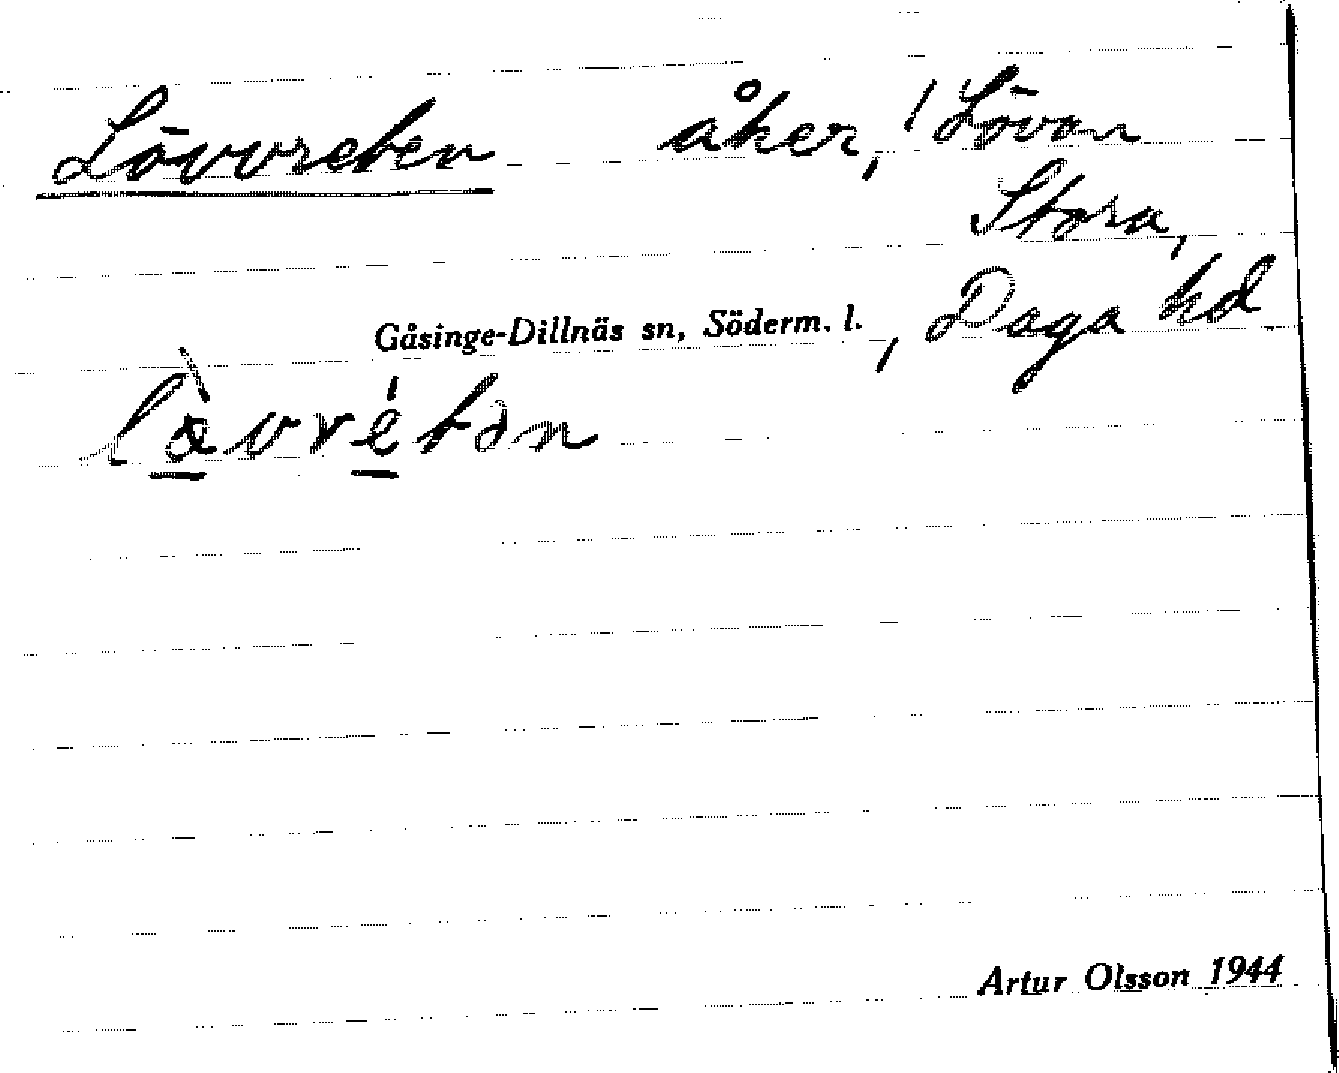 Lövvreten åker, / Lövön
Stora,
Gåsinge-Dillnäs sn, Söderm. l., Daga hd
Artur Olsson 1944